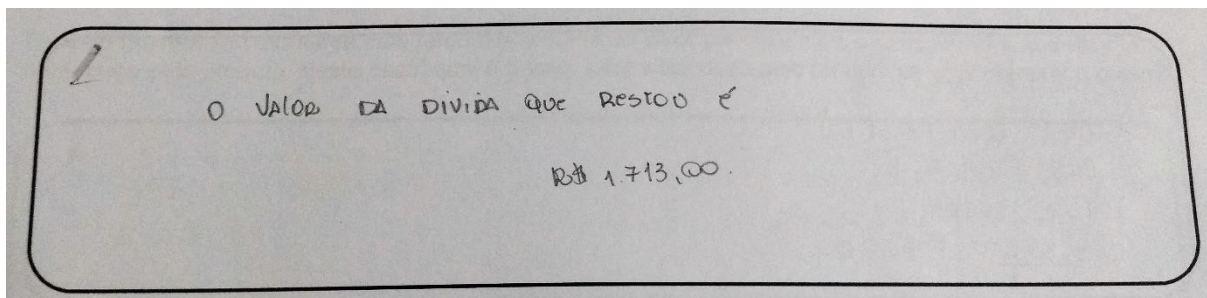 O VALOR DA DIVIDA QUE RESTOU É
R$ 1.713,00.